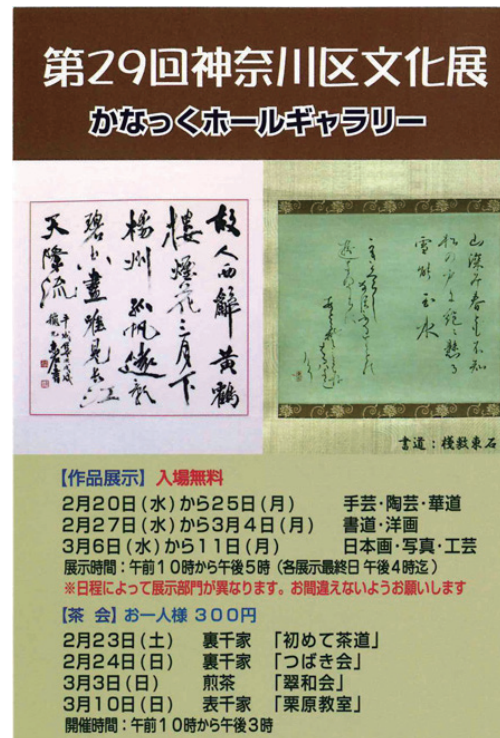 第29回神奈川区文化展
かなっくホールギャラリー
故人西辭黄鶴
樓煙花三月下
揚州孤帆遠影
碧山盡唯見長江
天際流
雪能玉水
書道：棧敷東石
【作品展示】入場無料
2月20日(水)から25日(月) 手芸・陶芸・華道
2月27日(水)から3月4日(月) 書道・洋画
3月6日(水)から11日(月) 日本画・写真・工芸
展示時間：午前10時から午後5時（各展示最終日 午後4時迄）
※日程によって展示部門が異なります。お間違えないようお願いします
【茶 会】お一人様 300円
2月23日(土) 裏千家 「初めて茶道」
2月24日(日) 裏千家 「つばき会」
3月3日(日) 煎茶 「翠和会」
3月10日(日) 表千家 「栗原教室」
開催時間：午前10時から午後3時